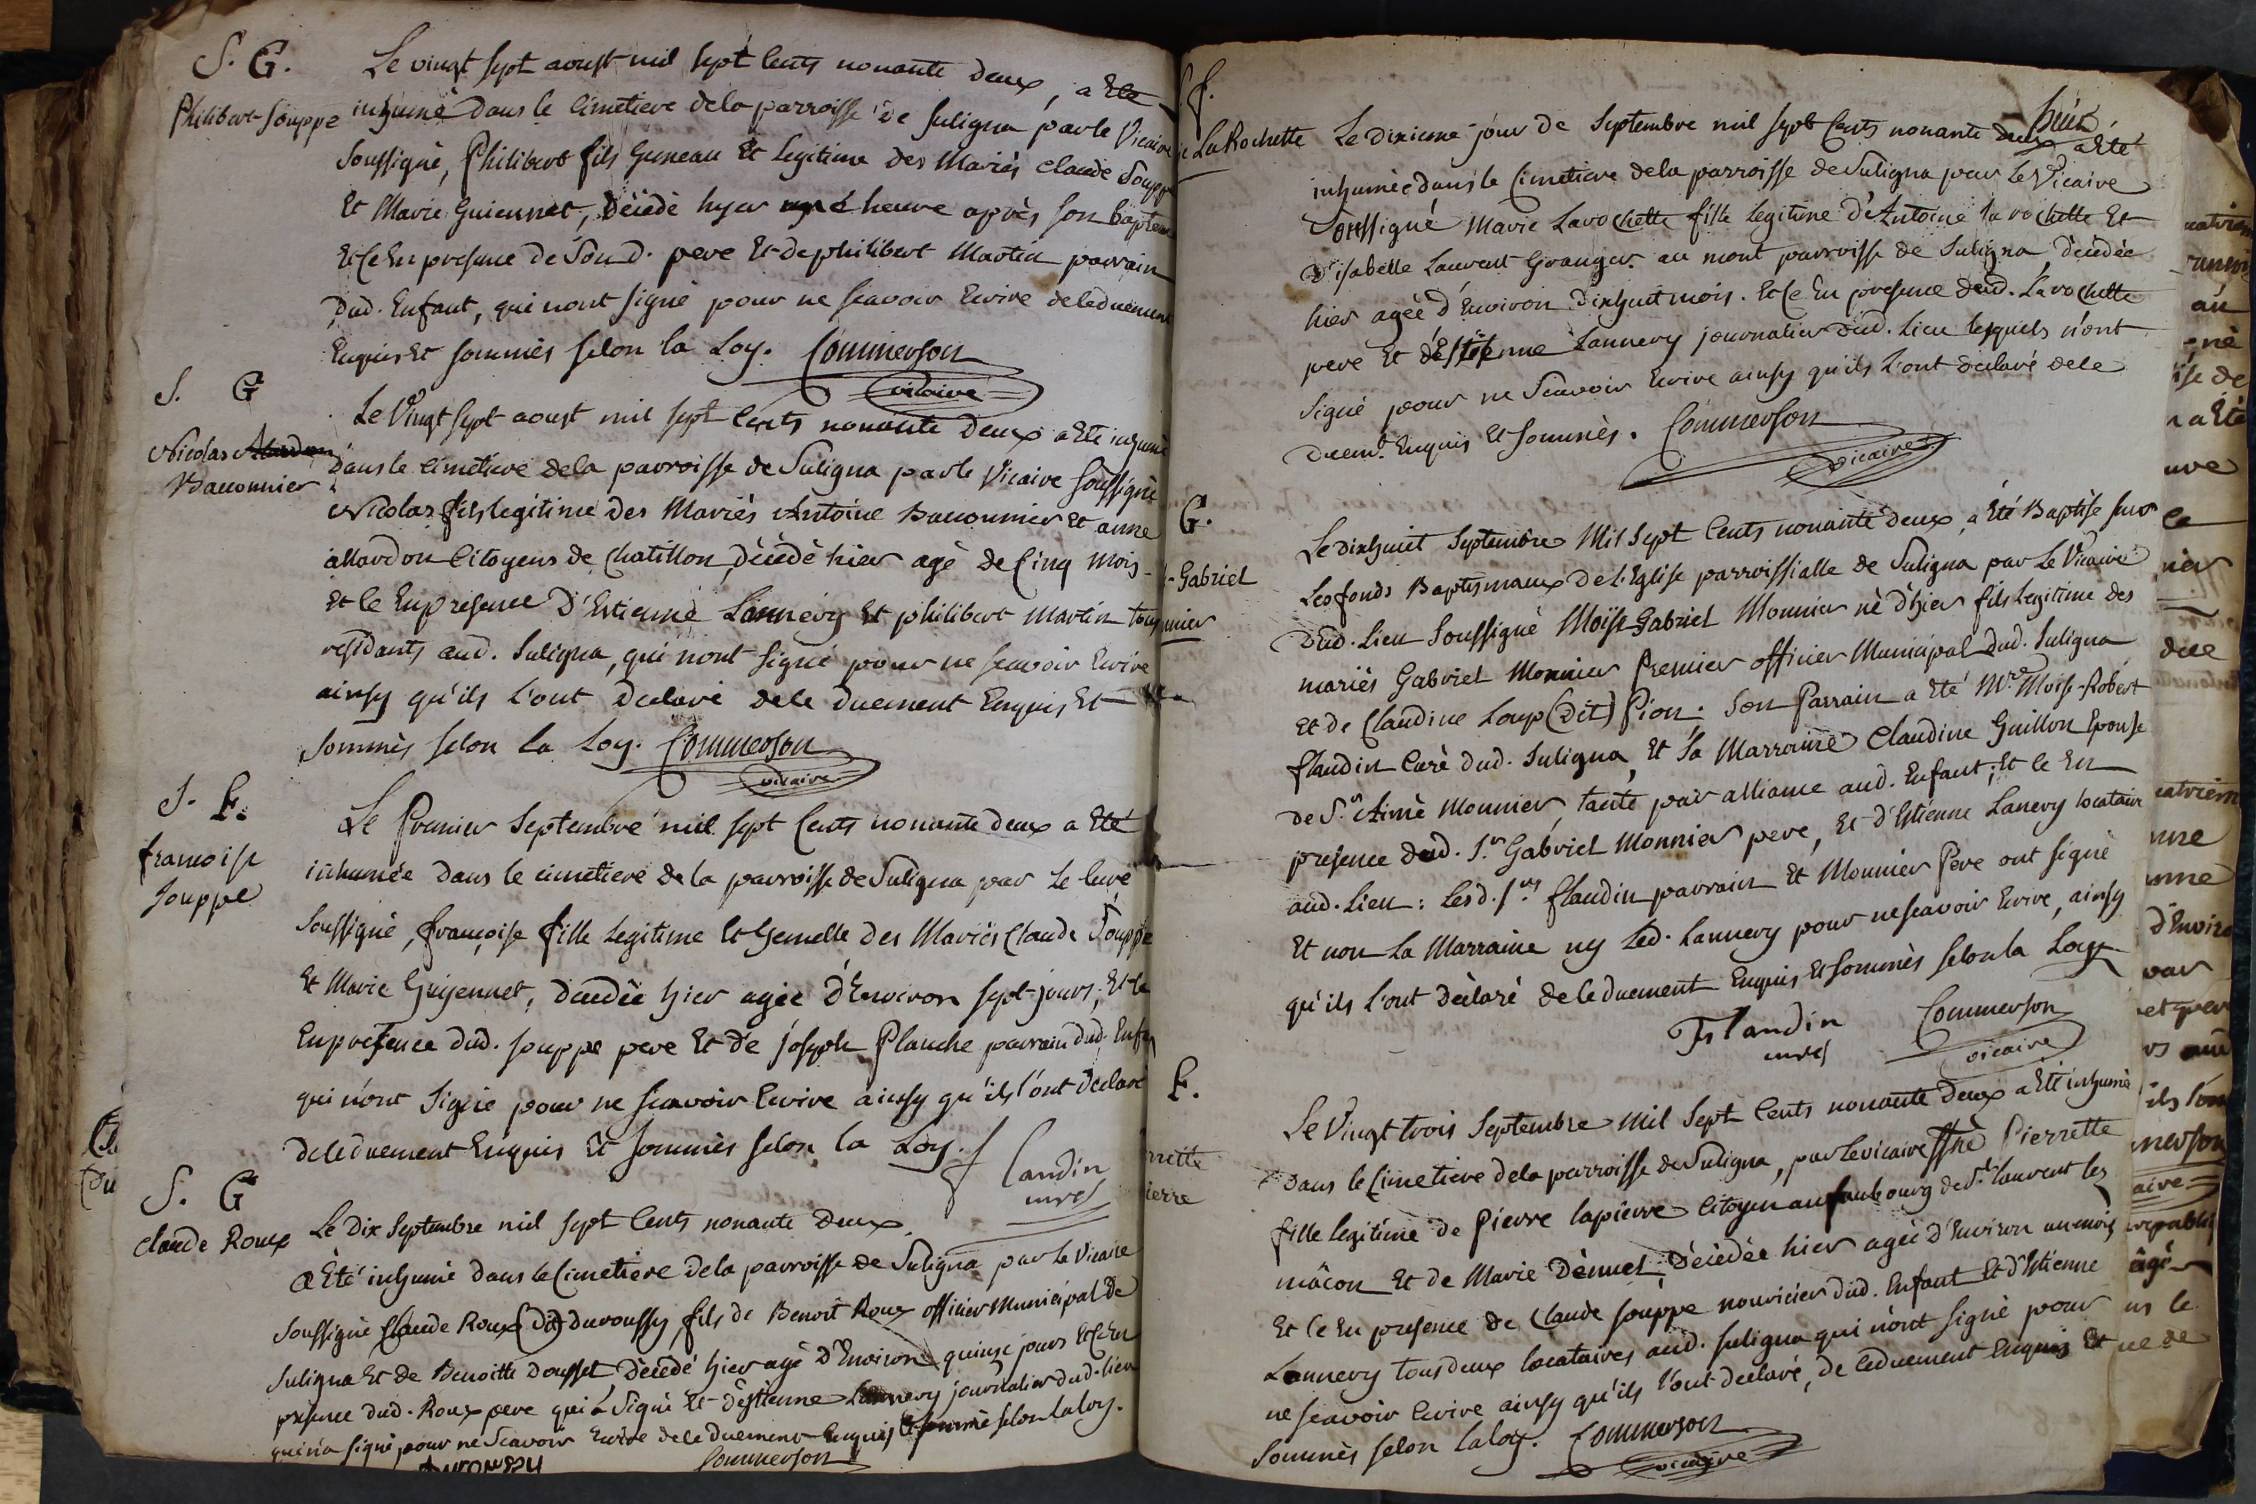 S. G.
Philibert Souppe
Le vingt sept aoust mil sept Cents nonante deux, a Eté
inhumé dans le Cimetiere de la parroisse de Suligna par le Vicaire
soussigné, Philibert fils Gemeau Et Legitime des Mariés Claude Souppe
Et Marie Guiennet, décédé hyer heure après son baptême
Et Ce En presence de Son d. pere Et de philibert Martin parrain
dud. Enfant, qui n'ont signé pour ne scavoir Ecrire de le duement
Enquis Et sommés selon la Loy. Commerson
vicaire
S. G
Nicolas
Baconnier
Le Vingt sept aoust mil sept Cents nonante deux a Eté inhumé
dans le Cimetiere de la parroisse de Suligna par le Vicaire soussigné
Nicolas fils legitime des Mariés Antoine Baconnier Et anne
allardon Citoyens de Chatillon, décédé hier agé de Cinq mois
Et Ce En presence D'Estienne Lannery Et philibert Martin tous
résidants aud. Suligna, qui n'ont signé pour ne scavoir Ecrire
ainsy qu'ils L'ont declaré de le duement Enquis Et
sommés selon la Loy. Commerson
vicaire
S. F.
francoise
Souppe
Le Premier Septembre mil sept Cents nonante deux a Eté
inhumée dans le cimetiere de la parroisse de Suligna par Le Curé
soussigné, françoise fille Legitime Et Gemelle des Mariés Claude Souppe
Et Marie Guyennet, décédée hier agée d'Environ sept jours; Et Ce
En presence dud. souppe pere Et de joseph Planche parrain dud. Enfan
qui n'ont signé pour ne scavoir Ecrire ainsy qu'ils l'ont déclaré
de le duement Enquis Et sommés selon la Loy. flandin
curé
S. G
Claude Roux
Le dix Septembre mil sept Cents nonante deux
a Eté inhumé dans le Cimetiere de la parroisse de Suligna par le Vicaire
soussigné Claude Roux (dit) duroussy fils de Benoit Roux officier Municipal de
Suligna Et de Benoitte décédé hier agé d'Environ quinze jours Et Ce En
presence dud. Roux pere qui a signé Et d'Estienne Lannery journalier dud. lieu
qui n'a signé pour ne scavoir Ecrire de le duement Enquis Et sommé selon la loy.
Commerson
S f.
La Rochette
Le dixieme jour de Septembre mil sept Cents nonante deux a Eté
inhumée dans le Cimetiere de la parroisse de Suligna par Le Vicaire
soussigné Marie Larochette fille legitime d'Antoine la rochette Et
d'isabelle Laurent Granger. au mont parroisse de Suligna, décédée
hier agée d'Environ dixhuit mois. Et Ce En presence dud. Larochette
pere Et d'Estienne Lannery journalier dud. Lieu lesquels n'ont
signé pour ne Scavoir Ecrire ainsy qu'ils l'ont declaré de le
duemt. Enquis Et sommés. Commerson
vicaire
G.
Gabriel
nnier
Le dixhuit Septembre Mil Sept Cents nonante deux a Eté Baptisé sur
Les fonds Baptismaux de L'Eglise parroissialle de Suligna par Le Vicaire
dud. Lieu Soussigné Moise Gabriel Monnier né d'hier fils Legitime des
mariés Gabriel Monnier Premier officier Municipal dud. Suligna
Et de Claudine Loup (dit) Pion. Son Parrain a Eté Mre Moise-Robert
flandin Curé dud. Suligna, Et Sa Marraine Claudine Guillon Epouse
de Sr Aimé Monnier, tante par alliance aud. Enfant; Et Ce En
presence dud. Sr Gabriel Monnier pere, Et d'Estienne Lanery locataire
aud. Lieu: Lesd. Srs flandin parrain Et Monnier Pere ont signé
Et non La Marraine ny Led. Lannery pour ne scavoir Ecrire, ainsy
qu'ils l'ont Déclaré de le duement Enquis Et Sommés selon la Loy
flandin
curé
Commerson
vicaire
F.
rrette
ierre
Le Vingt trois Septembre Mil Sept Cents nonante Deux a Eté inhumé
dans le Cimetiere de la parroisse de Suligna, par le vicaire ssné Pierrette
fille Legitime de Pierre lapierre Citoyen au faubourg de St. laurent les
mâcon Et de Marie Dénuel; Décédée hier agée d'Environ un mois
Et Ce En presence de Claude Souppe nouricier dud. Enfant Et d'Etienne
Lannery tous deux locataires aud. Suligna qui n'ont signé pour
ne scavoir Ecrire ainsy qu'ils l'ont declaré, de le duement Enquis Et
sommés selon la loy. Commerson
vicaire